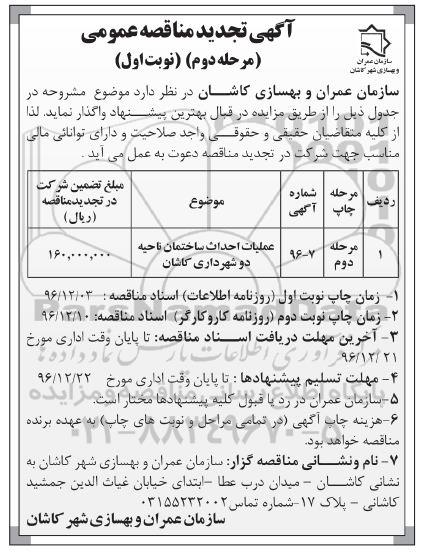 آگهی تجدید مناقصه عمومی
(مرحله دوم) (نوبت اول)
سازمان عمران
و بهسازی شهر کاشان
سازمان عمران و بهسازی کاشــان در نظر دارد موضوع مشروحه در
جدول ذیل را از طریق مزایده در قبال بهترین پیشــنهاد واگذار نماید. لذا
از کلیه متقاضیان حقیقی و حقوقــی واجد صلاحیت و دارای توانائی مالی
مناسب جهت شرکت در تجدید مناقصه دعوت به عمل می آید .
ردیف | مرحله چاپ | شماره آگهی | موضوع | مبلغ تضمین شرکت در تجدیدمناقصه (ریال)
۱ | مرحله دوم | ۹۶-۷ | عملیات احداث ساختمان ناحیه دو شهرداری کاشان | ۱۶۰,۰۰۰,۰۰۰
۱- زمان چاپ نوبت اول (روزنامه اطلاعات) اسناد مناقصه : ۹۶/۱۲/۰۳
۲- زمان چاپ نوبت دوم (روزنامه کاروکارگر) اسناد مناقصه: ۹۶/۱۲/۱۰
۳- آخرین مهلت دریافت اســناد مناقصه: تا پایان وقت اداری مورخ
۹۶/۱۲/۲۱
۴- مهلت تسلیم پیشنهادها : تا پایان وقت اداری مورخ ۹۶/۱۲/۲۲
۵-سازمان عمران در رد یا قبول کلیه پیشنهادها مختار است.
۶-هزینه چاپ آگهی (در تمامی مراحل و نوبت های چاپ) به عهده برنده
مناقصه خواهد بود.
۷- نام ونشــانی مناقصه گزار: سازمان عمران و بهسازی شهر کاشان به
نشانی کاشــان – میدان درب عطا –ابتدای خیابان غیاث الدین جمشید
کاشانی – پلاک ۱۷-شماره تماس۰۳۱۵۵۲۳۲۰۰۲
سازمان عمران و بهسازی شهر کاشان
۰۲۱-۸۸۳۴۹۶۷۰-۵